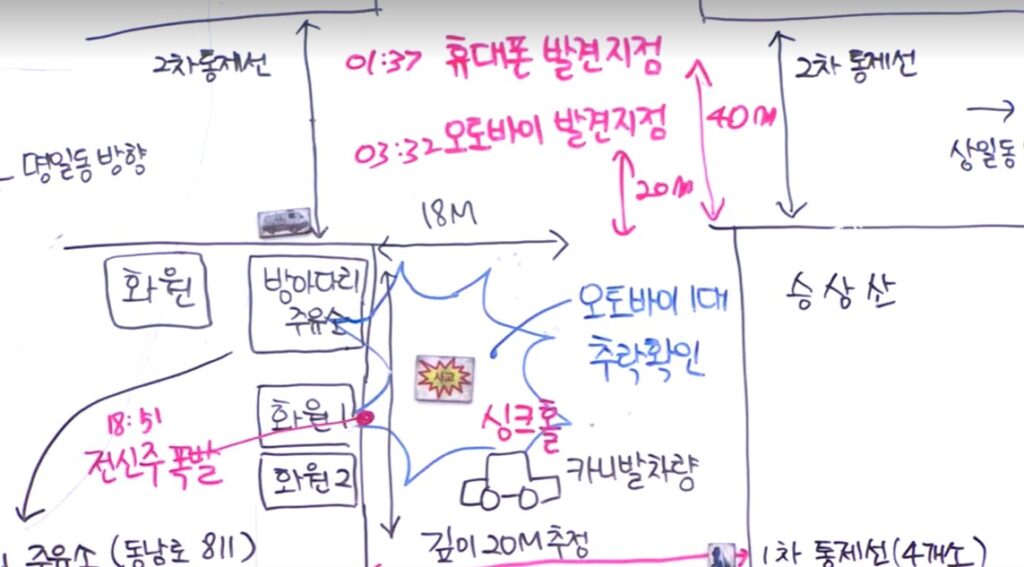 2차통제선
01:37 휴대폰 발견지점
2차 통제선
40M
03:32 오토바이 발견지점
명일동 방향
상일동
20M
18M
화원
방아다리
주유소
오토바이 1대
추락확인
승상산
사고
화원1
싱크홀
18:51
전신주 폭발
화원2
카니발차량
주유소 (동남로 811)
깊이 20M 추정
1차 통제선(4개소)